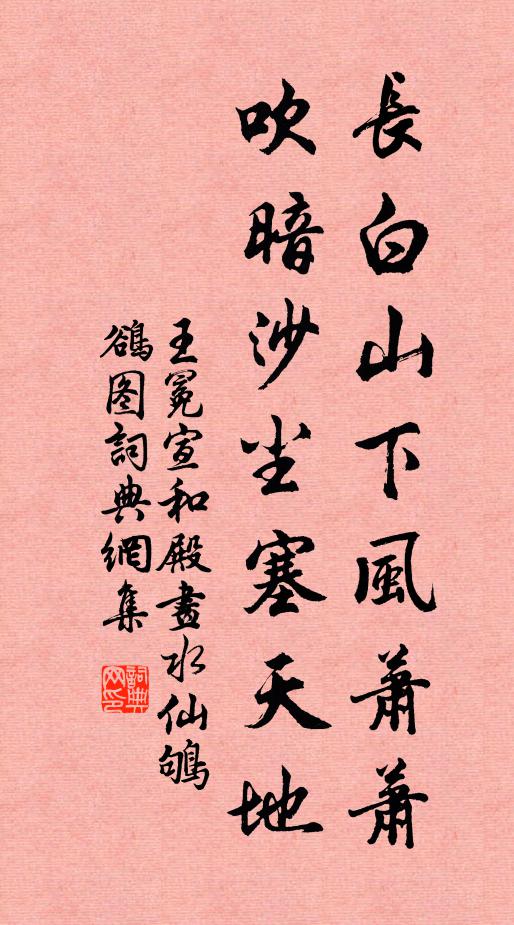 長白山下風蕭蕭
吹暗沙尘塞天地
王冕宣和殿畫水仙鴝
鵒图詞典網集
詞典网印